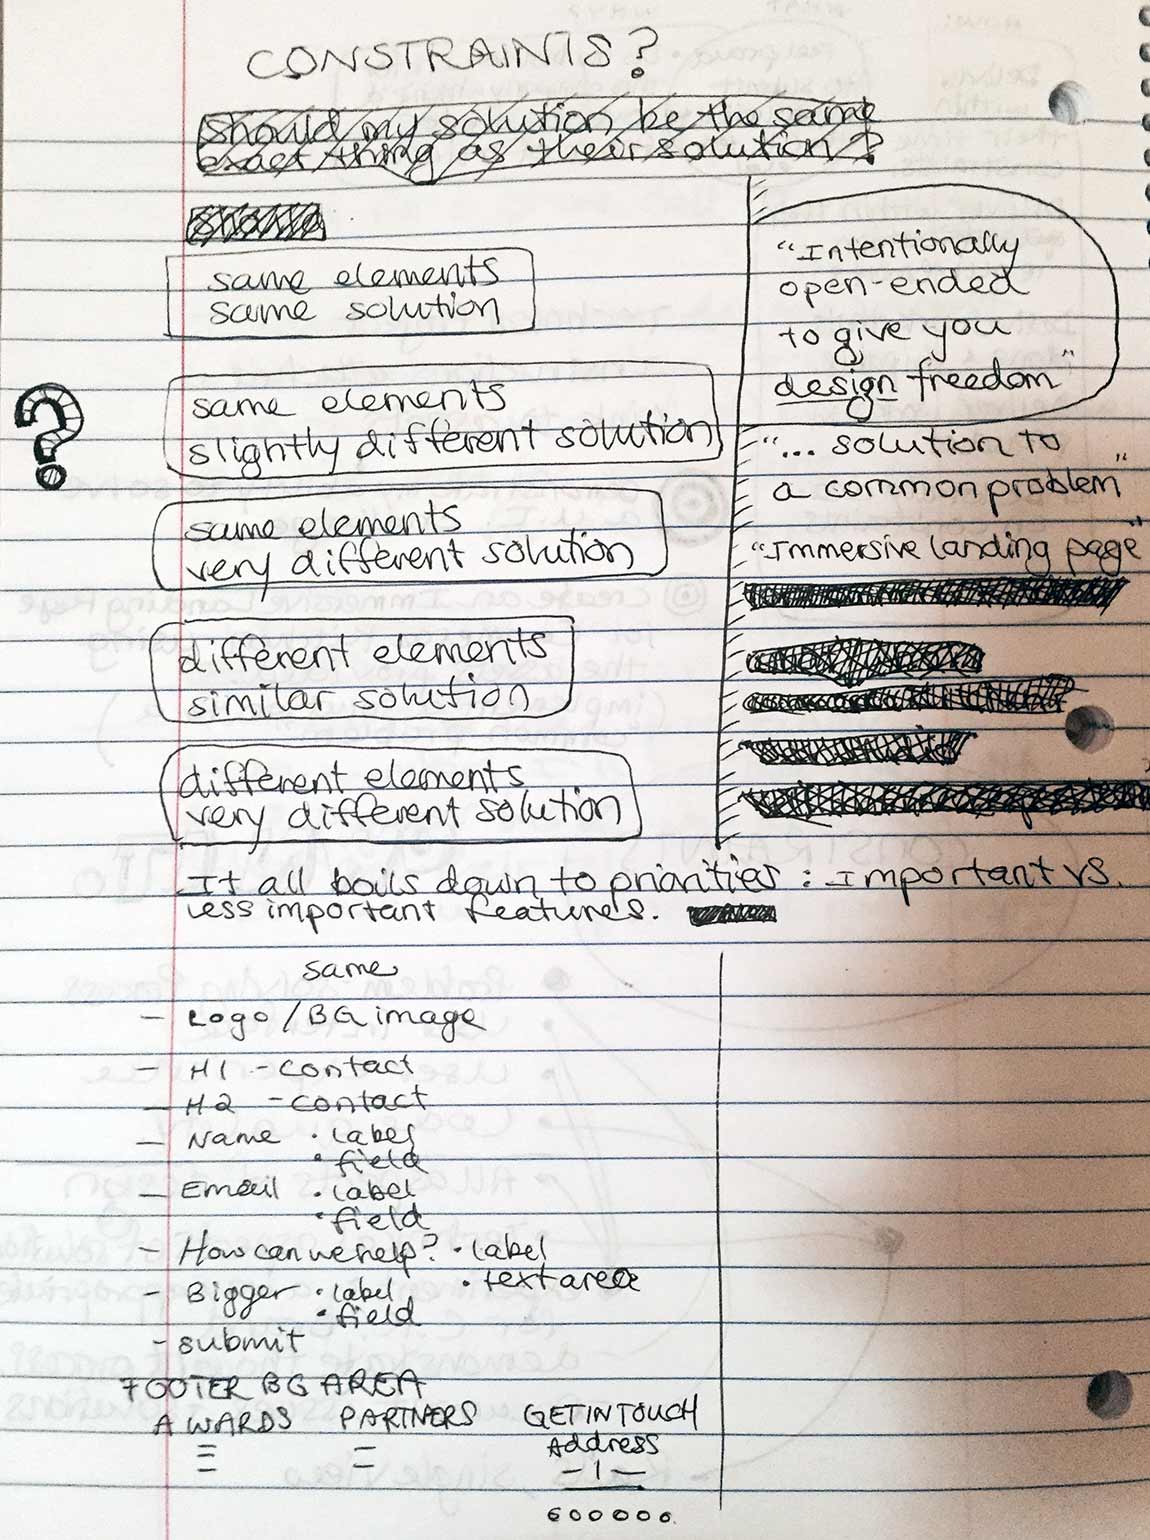 CONSTRAINTS?
should my solution be the same
exact thing as their solution?
should
same elements
same solution
same elements
slightly different solution
?
same elements
very different solution
different elements
similar solution
different elements
very different solution
"Intentionally
open-ended
to give you
design freedom"
"... solution to
a common problem"
"Immersive landing page"
It all boils down to priorities: Important vs.
less important features.
same
- Logo / BG image
- H1 - contact
- H2 - contact
- Name • label
• field
- Email • label
• field
- How can we help? • label
• textarea
- Bigger • label
• field
- submit
FOOTER BG AREA
AWARDS PARTNERS GET IN TOUCH
Address